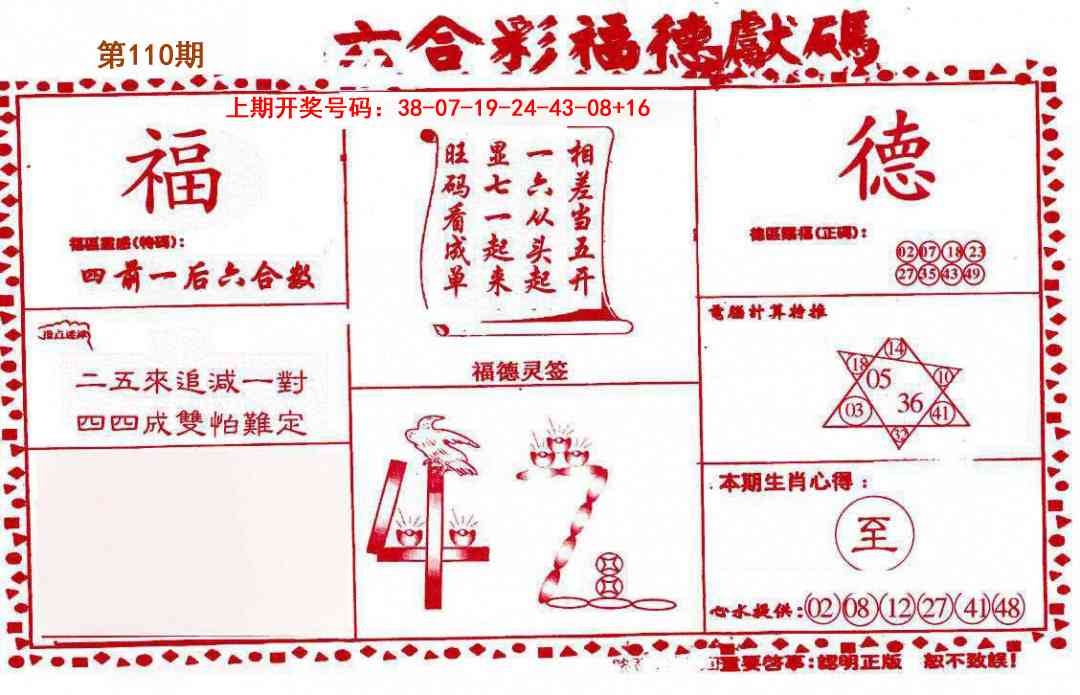 第110期
六合彩福德獻碼
上期开奖号码：38-07-19-24-43-08+16
福
福區靈感(特碼)：
四前一后六合数
二五來追減一對
四四成雙怕難定
相差当五开
一六从头起
显七一起来
旺码看成单
福德灵签
42
德
德區賜福(正碼)：
02 07 18 23
27 35 43 49
電腦計算特推
14
18 10
05
36
03 41
32
本期生肖心得：
至
心水提供：02 08 12 27 41 48
重要啓事：認明正版 恕不致誤！